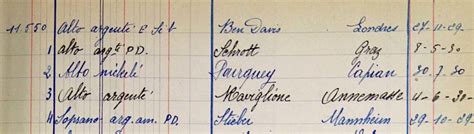 11.550 Alto argenté E Si♭ Ben Davis Londres 27-11-29
1 alto argté P.D. Schrott Graz 8-5-30
2 Alto nickelé Pourquey Capian 30.7.30
3 Alto argenté Maviglione Annemasse 4-6-30
4 Soprano arg. am. P.D. Stieber Mannheim 29-10-29